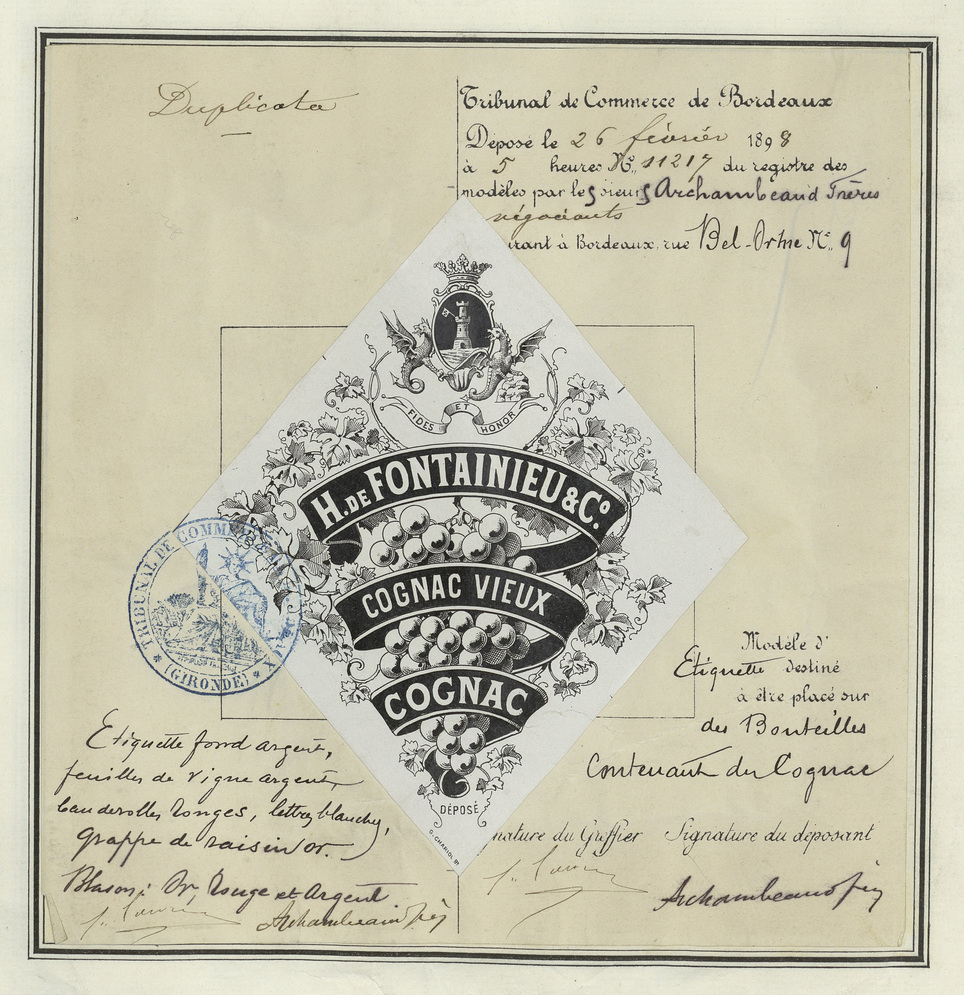 Duplicata
Tribunal de Commerce de Bordeaux
Déposé le 26 février 1898
à 5 heures N° 11217 du registre des
modèles par les sieurs Archambeaud Frères
négociants
à Bordeaux, rue Bel-Orme N° 9
FIDES ET HONOR
H. DE FONTAINIEU & Cº
COGNAC VIEUX
COGNAC
DÉPOSÉ
G. CHARIOL Bx
TRIBUNAL DE COMMERCE
(GIRONDE)
Modèle d'
Etiquette destiné
à être placé sur
des Bouteilles
Contenant du Cognac
Etiquette fond argent,
feuilles de vigne argent,
banderolles rouges, lettres blanches,
grappe de raisin or.
Blason: Or Rouge et Argent
Archambeaud frès
nature du Greffier
Signature du déposant
Archambeaud frès